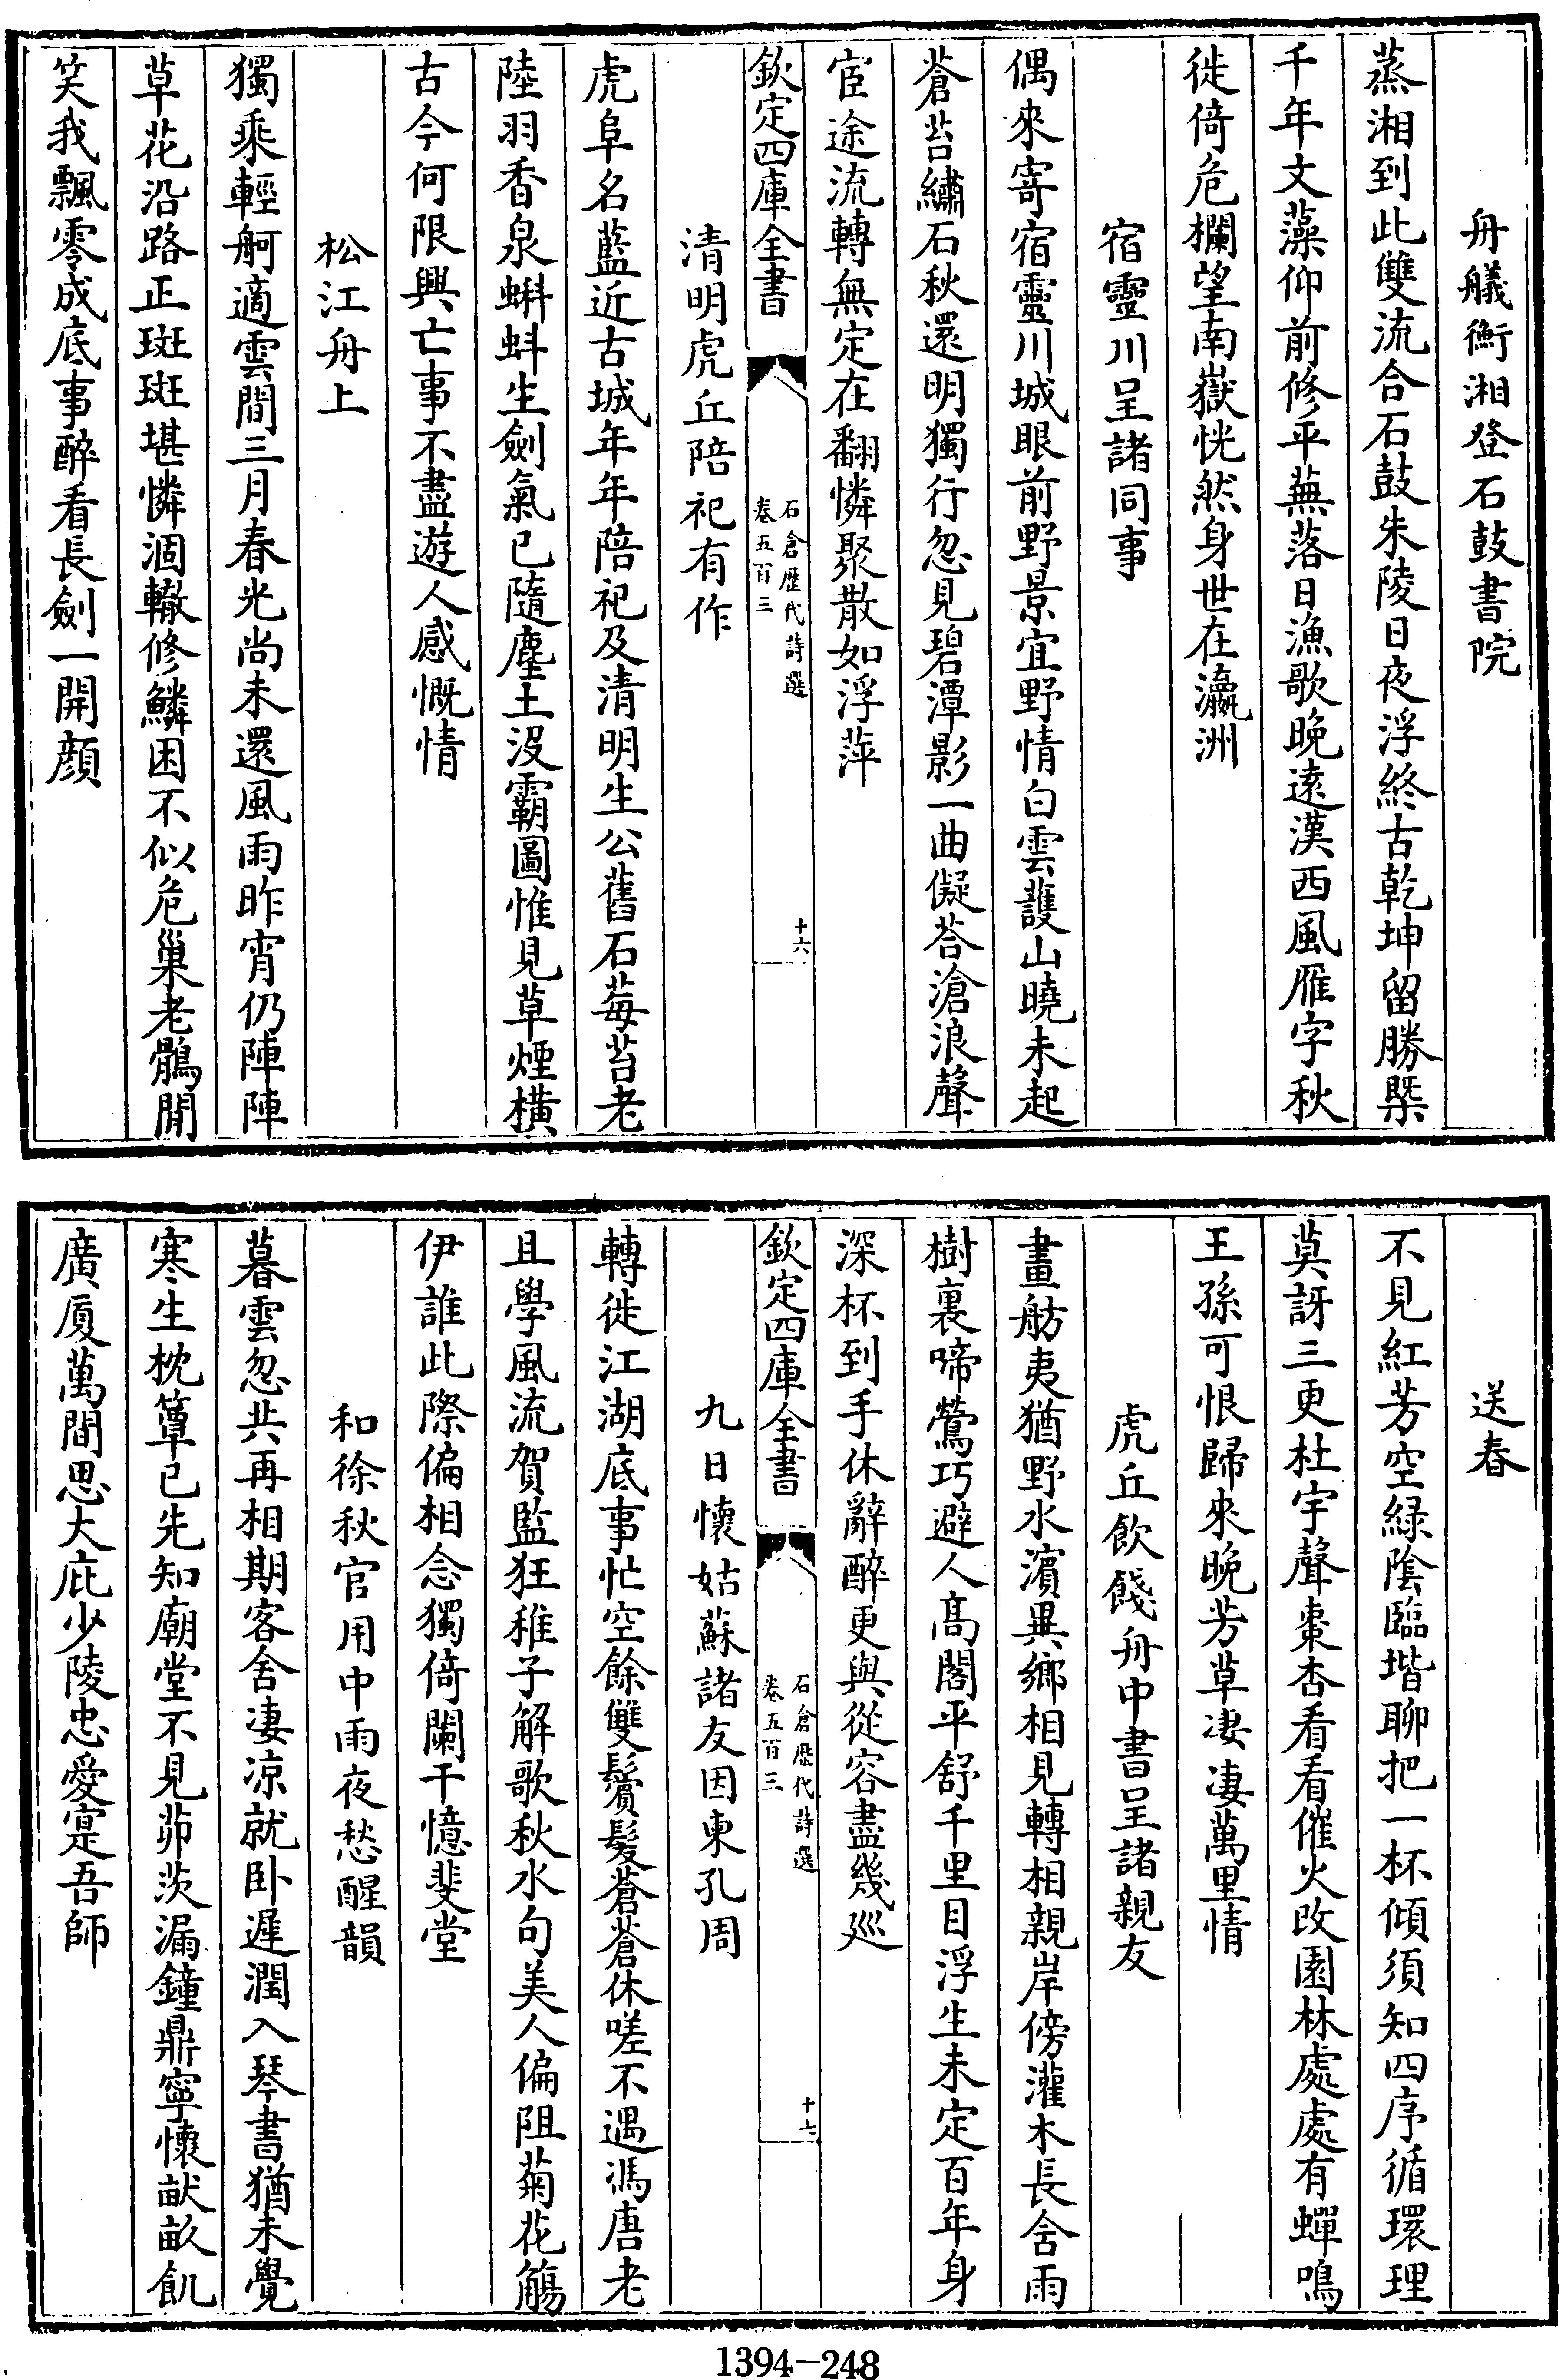 舟艤衡湘登石鼓書院
蒸湘到此雙流合石鼓朱陵日夜浮終古乾坤留勝槩
千年文藻仰前修平蕪落日漁歌晚遠漢西風雁字秋
徙倚危欄望南嶽恍然身世在瀛洲
宿靈川呈諸同事
偶來寄宿靈川城眼前野景宜野情白雲護山曉未起
蒼苔繡石秋還明獨行忽見碧潭影一曲儗荅滄浪聲
宦途流轉無定在翻憐聚散如浮萍
欽定四庫全書
石倉歷代詩選
卷五百三
十六
清明虎丘陪祀有作
虎阜名藍近古城年年陪祀及清明生公舊石莓苔老
陸羽香泉蝌蚪生劍氣已隨塵土沒霸圖惟見草煙橫
古今何限興亡事不盡遊人感慨情
松江舟上
獨乘輕舸適雲間三月春光尚未還風雨昨宵仍陣陣
草花沿路正斑斑堪憐涸轍修鱗困不似危巢老鶻閒
笑我飄零成底事醉看長劍一開顔
送春
不見紅芳空緑陰臨堦聊把一杯傾須知四序循環理
莫訝三更杜宇聲棗杏看看催火改園林處處有蟬鳴
王孫可恨歸來晚芳草凄凄萬里情
虎丘飲餞舟中書呈諸親友
畫舫夷猶野水濱異鄉相見轉相親岸傍灌木長含雨
樹裏啼鶯巧避人髙閣平舒千里目浮生未定百年身
深杯到手休辭醉更與從容盡幾廵
欽定四庫全書
石倉歷代詩選
卷五百三
十七
九日懷姑蘇諸友因柬孔周
轉徙江湖底事忙空餘雙鬢髮蒼蒼休嗟不遇馮唐老
且學風流賀監狂稚子解歌秋水句美人偏阻菊花觴
伊誰此際偏相念獨倚闌干憶斐堂
和徐秋官用中雨夜愁醒韻
暮雲忽共再相期客舍凄凉就卧遲潤入琴書猶未覺
寒生枕簟已先知廟堂不見茆茨漏鐘鼎寧懷畎畝飢
廣厦萬間思大庇少陵忠愛寔吾師
1394-248